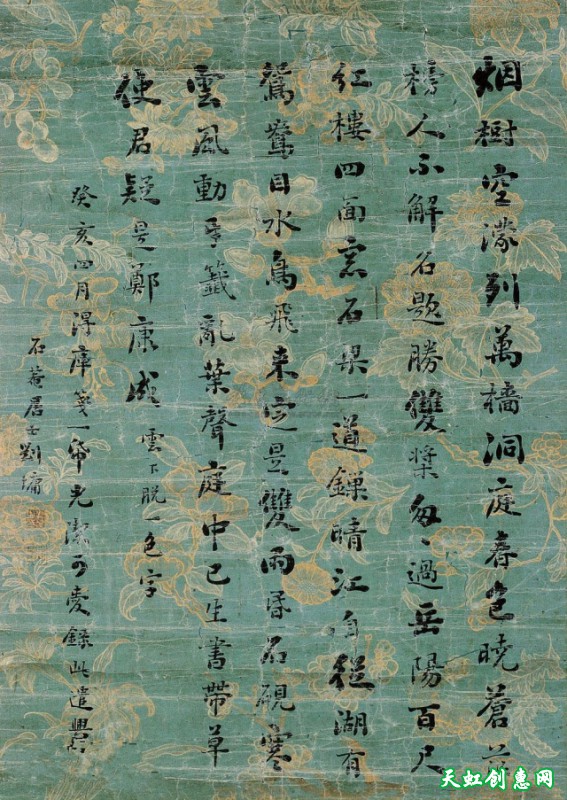 烟樹空濛列萬檣洞庭春色曉蒼茫
榜人不解名題勝雙槳匆〻過岳陽百尺
紅樓四面窓石梁一道鏁晴江自從湖有
鴛鴦目水鳥飛来定是雙雨昏石硯寒
雲風動牙籤亂葉聲庭中已生書帶草
使君疑是鄭康成 雲下脱一色字
癸亥四月得庫箋一帋光潔可愛録此遣興
石菴居士劉墉
天虹创惠网